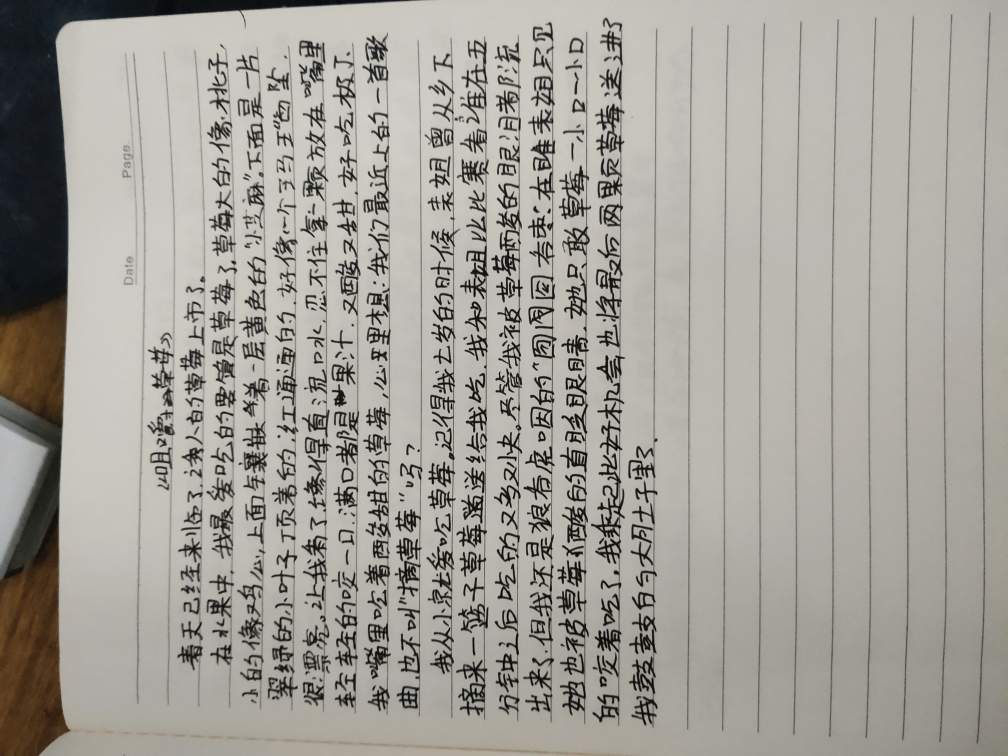 Date
Page
《咀嚼草莓》
春天已经来临了,诱人的草莓上市了。
在水果中,我最爱吃的要属是草莓了,草莓大的像桃子,
小的像鸡心,上面镶嵌着一层黄色的“小芝麻”,下面是一片
翠绿的小叶子,顶着的红通通的,好像一个“弓马王”包坠,
很漂亮。让我看了馋得直流口水,忍不住拿一颗放在嘴里
轻轻的咬一口,满口都是果汁,又酸又甜,好吃极了,
我嘴里吃着酸甜的草莓,心里想:我们最近上的一首歌
曲,也不叫“摘草莓”吗?
我从小就爱吃草莓。记得我七岁的时候,表姐曾从乡下
摘来一篮子草莓送给我吃,我和表姐比比赛看谁在五
分钟之后吃的又多又快。尽管我被草莓酸的眼泪都流
出来了,但我还是狼吞虎咽的“囫囵吞枣”在瞧表姐只见
她也被草莓酸的直眨眼睛,她只敢草莓一小口一小口
的咬着吃了,我趁起此好机会也将最后两颗草莓送进了
我鼓鼓的大肚子里了.